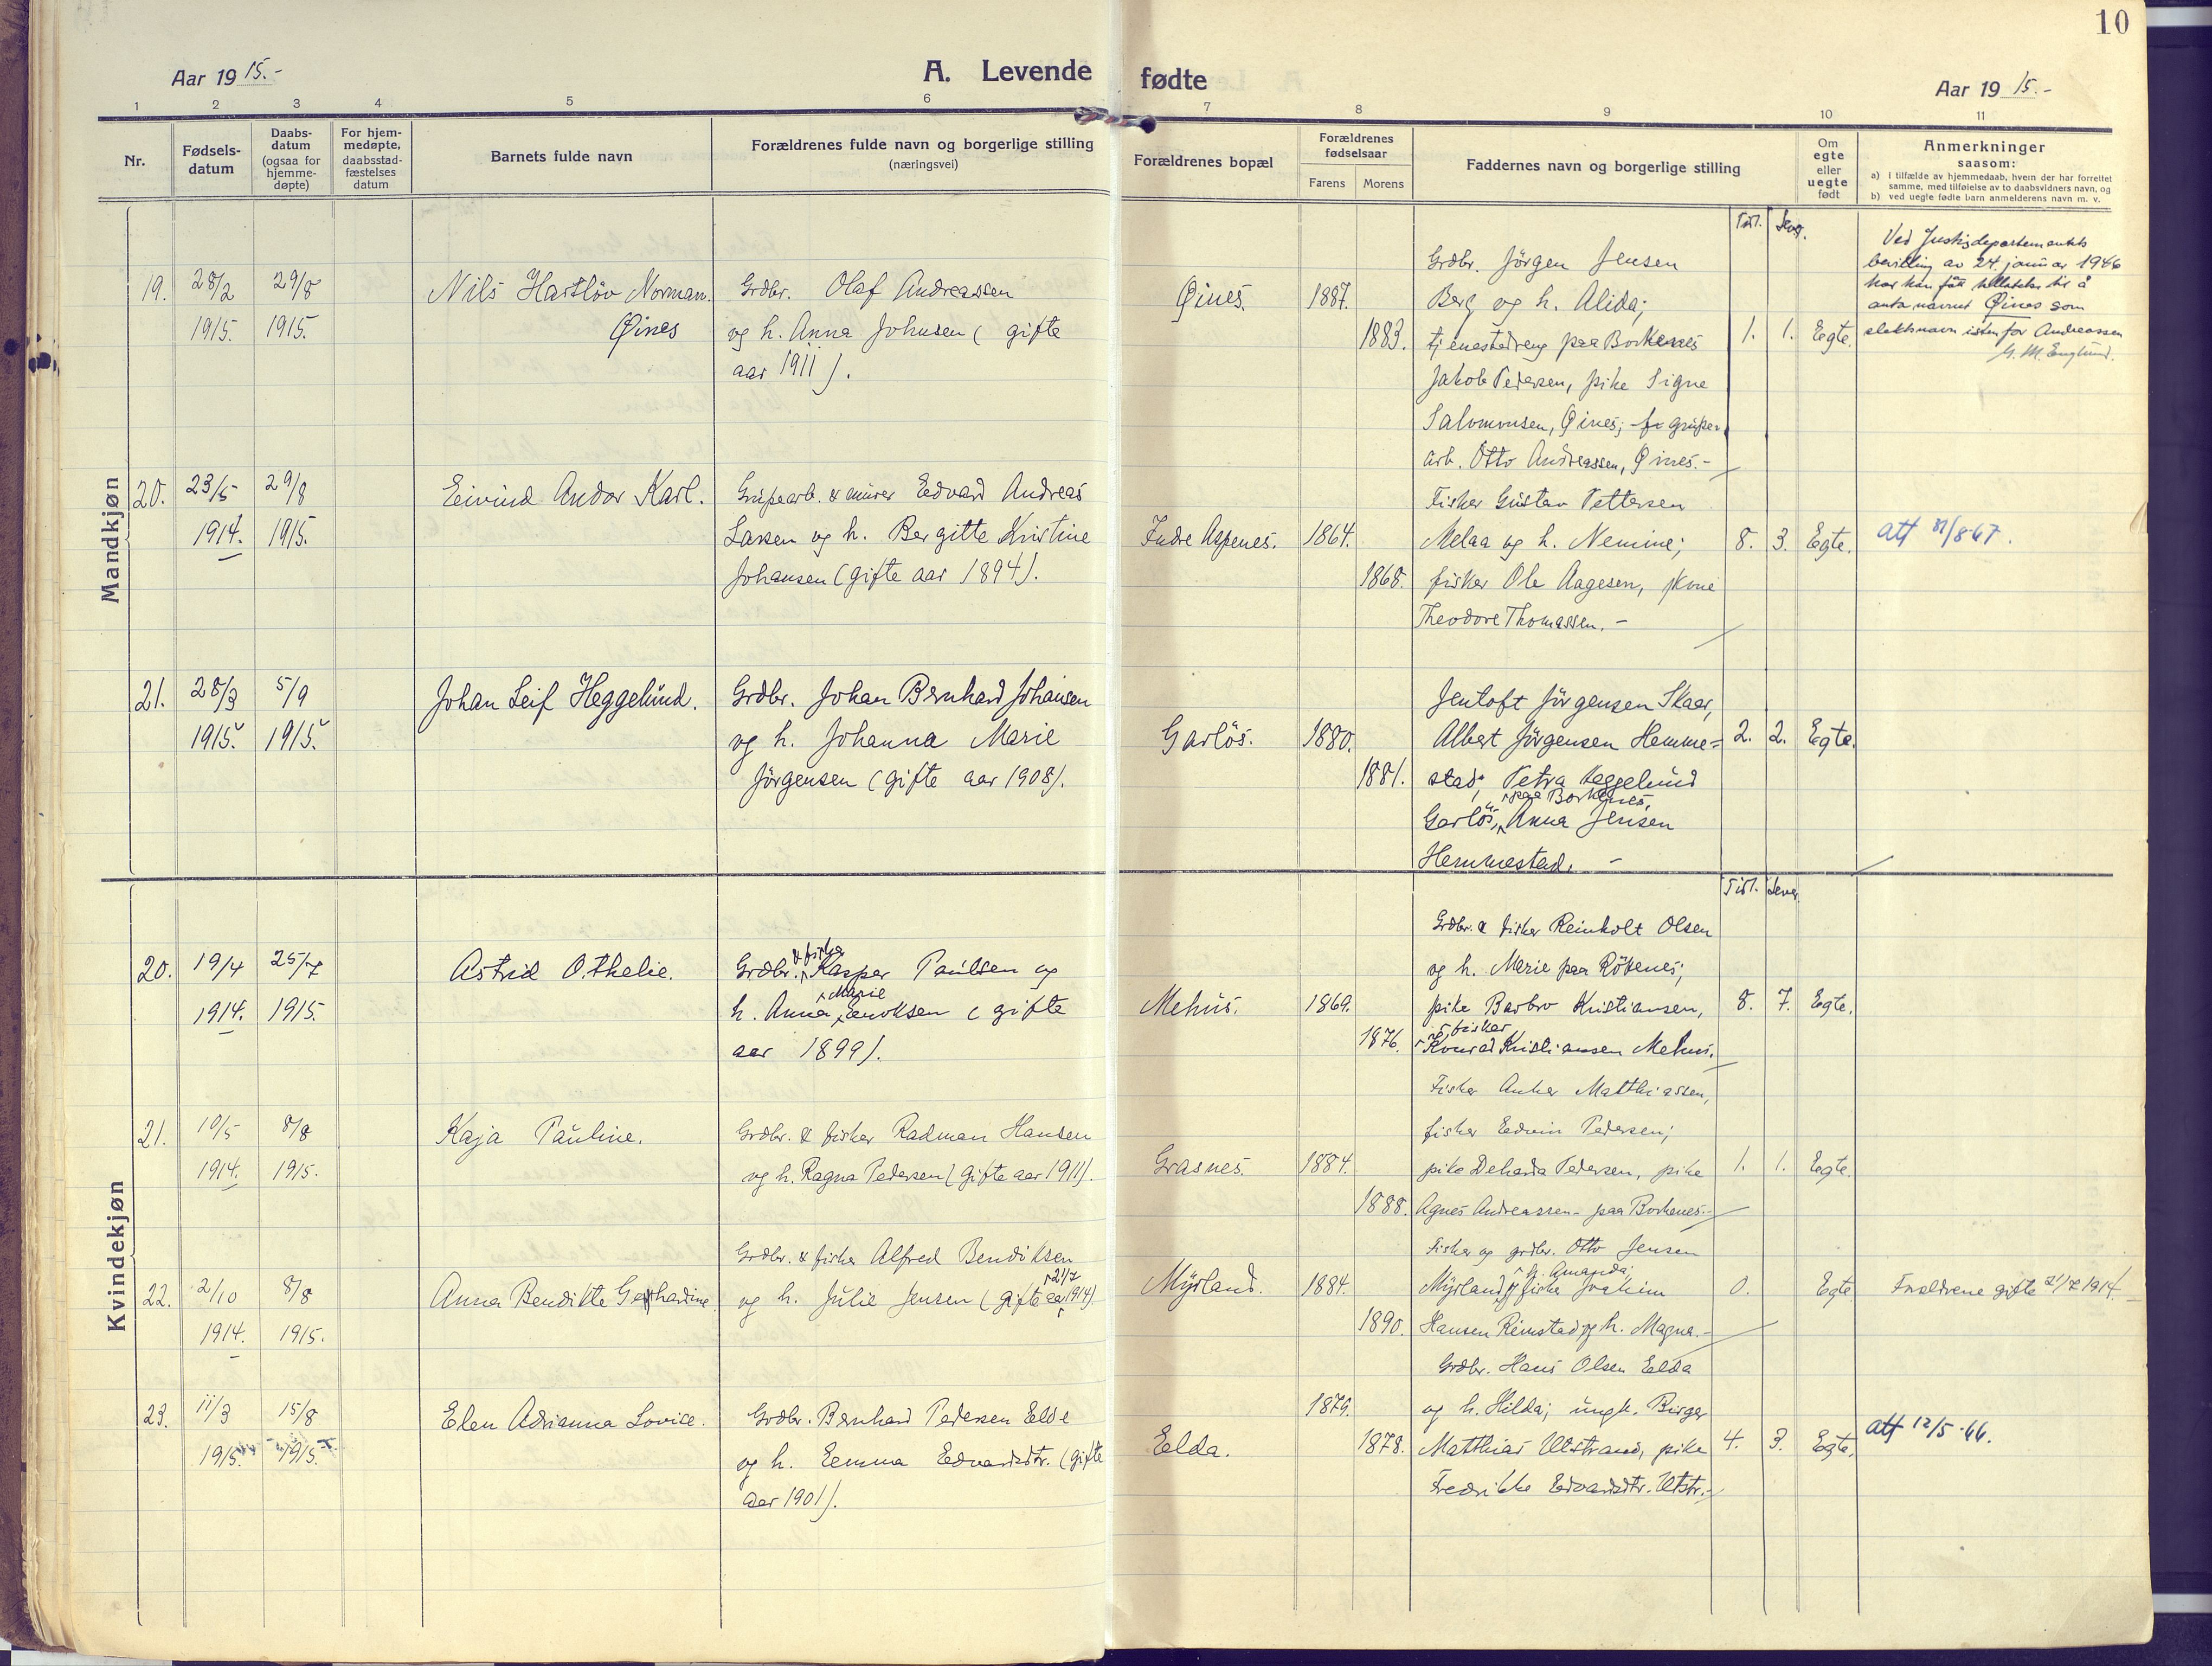 10
Aar 1915.-
A. Levende fødte
Aar 1915.-
1 2 3 4 5 6 7 8 9 10 11
Nr.
Fødsels-
datum
Daabs-
datum
(ogsaa for
hjemme-
døpte)
For hjem-
medøpte,
daabsstad-
fæstelses
datum
Barnets fulde navn
Forældrenes fulde navn og borgerlige stilling
(næringsvei)
Forældrenes bopæl
Forældrenes
fødselsaar
Farens Morens
Faddernes navn og borgerlige stilling
Om
egte
eller
uegte
født
Anmerkninger
saasom:
a) I tilfælde av hjemmedaab, hvem der har forrettet
samme, med tilføielse av to daabsvidners navn, og
b) ved uegte fødte barn anmelderens navn m. v.
Mandkjøn
Tidl. Lever.
19.
28/2
1915.
29/8
1915.
Nils Hartløv Norman.
Øines
Grdbr. Olaf Andreassen
og h. Anna Johnsen ( gifte
aar 1911 ).
Øines.
1887.
1883.
Grdbr. Jörgen Jensen
Berg og h. Alida;
tjenestedreng paa Borkenes
Jakob Pedersen, pike Signe
Salomonsen, Øines; gruber
arb. Otto Andreassen, Øines.-
1. 1. Egte.
Ved Justisdepartementets
bevilling av 24. januar 1946
har han fått tillatelse til å
anta navnet Øines som
slektsnavn istenfor Andreassen
G. M. Englund.
20.
23/5
1914.
29/8
1915.
Eivind Andor Karl.
Grubearb. & murer Edvard Andreas
Larsen og h. Bergitte Kristine
Johansen (gifte aar 1894).
Indre Aspenes.
1864.
1868.
Fisker Gustav Pettersen
Melaa og h. Nemine;
fisker Ole Aagesen, kone
Theodore Thomassen.-
8. 3. Egte.
Att 31/8-67.
21.
28/3
1915.
5/9
1915.
Johan Leif Heggelund.
Grdbr. Johan Bernhard Johansen
og h. Johanna Marie
Jörgensen (gifte aar 1908).
Garlös.
1880.
1881.
Jentoft Jörgensen Skaer,
Albert Jörgensen Hemme=
stad; Petra Heggelund
paa Borkenes,
Garlös, Anna Jensen
Hemmestad. -
2. 2. Egte.
Kvindekjøn
Tidl. Lever.
20.
19/4
1914.
25/7
1915.
Astrid Othelie.
& fisker
Grdbr. Kasper Paulsen og
Marie
h. Anna Enoksen ( gifte
aar 1899).
Mehus.
1869.
1876.
Grdbr. & fisker Reinholt Olsen
og h. Marie paa Rökenes;
pike Barbro Kristiansen,
fisker
Konrad Kristiansen Mehus.
8. 7. Egte.
21.
10/5
1914.
8/8
1915.
Kaja Pauline.
Grdbr. & fisker Radman Hansen
og h. Ragna Pedersen (gifte aar 1911).
Grasnes.
1884.
1888.
Fisker Anker Matthiassen,
fisker Edvin Pedersen;
pike Petersen, pike
Agnes Andreassen - paa Borkenes.-
1. 1. Egte.
22.
2/10
1914.
8/8
1915.
Anna Bendikte Gerhardine.
Grdbr. & fisker Alfred Bendiksen
21/7
og h. Julie Jensen (gifte aar 1914).
Myrland.
1884.
1890.
Fisker og grdbr. Otto Jensen
h. Amanda;
Myrland, fisker Joakim
Hansen Rimstad og h. Magna.-
0. Egte.
Forældrene gifte 21/7 1914.
23.
11/3
1915.
15/8
1915.
Elen Adrianna Lovise.
Grdbr. Bernhard Pedersen Elde
og h. Emma Edvardsdtr. (gifte
aar 1901).
Elda.
1879.
1878.
Grdbr. Hans Olsen Elda
og h. Hilda; ungk. Birger
Matthias Utstrand, pike
Fredrikke Edvardsdtr. Utstr.-
4. 3. Egte.
Att 12/5-66.